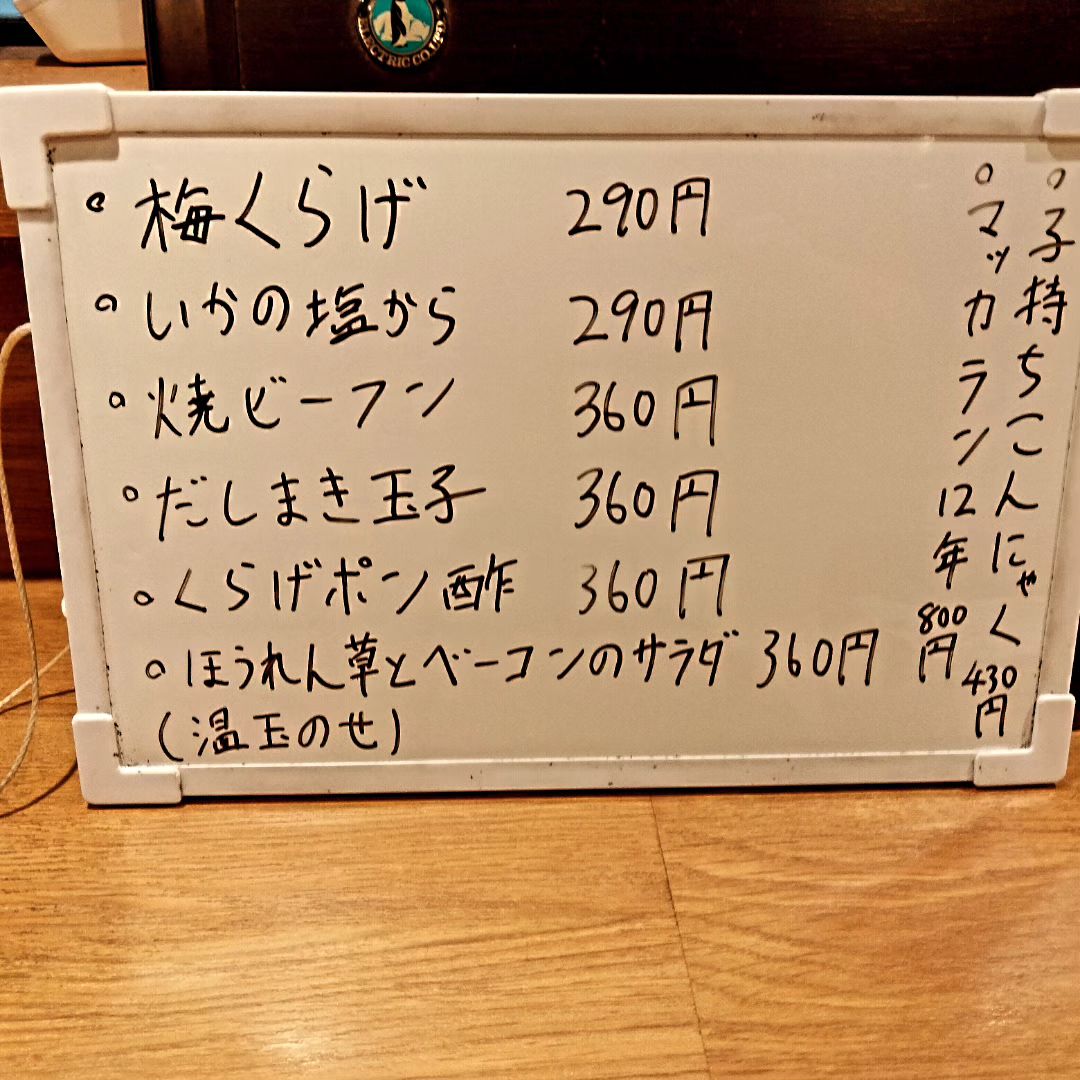 ELECTRIC CO. LTD
。梅くらげ 290円
。いかの塩から 290円
。焼ビーフン 360円
。だしまき玉子 360円
。くらげポン酢 360円
。ほうれん草とベーコンのサラダ 360円
(温玉のせ)
。子持ちこんにゃく 430円
。マッカラン12年 800円